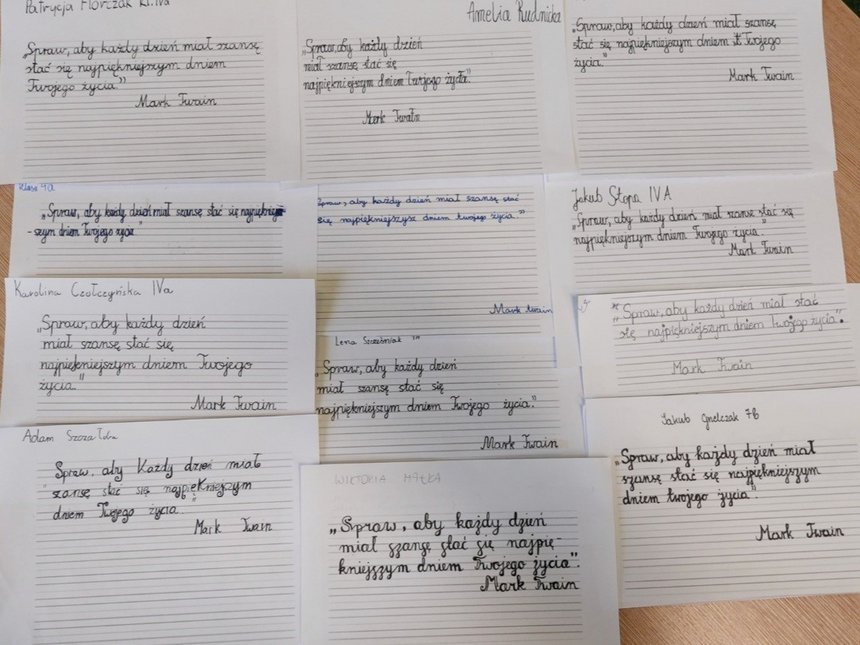 Patrycja Florczak kl.IVa
„Spraw, aby każdy dzień miał szansę
stać się najpiękniejszym dniem
Twojego życia.”
Mark Twain
Amelia Rudnicka
„Spraw, aby każdy dzień
miał szansę stać się
najpiękniejszym dniem Twojego życia."
Mark Twain
„Spraw, aby każdy dzień miał szansę
stać się najpiękniejszym dniem Twojego
życia."
Mark Twain
Klasa
„Spraw, aby każdy dzień miał szansę stać się
-szym dniem Twojego życia"
Spraw, aby każdy dzień miał szansę stać
się najpiękniejszysz dniem twojego życia."
Mark twain
Jakub Stopa IV A
„Spraw, aby każdy dzień miał szansę stać się
najpiękniejszym dniem Twojego życia.
Mark Twain
Karolina Czołczyńska IVa
„Spraw, aby każdy dzień
miał szansę stać się
najpiękniejszym dniem Twojego
życia."
Mark Twain
Lena
„Spraw, aby każdy dzień
miał szansę stać się
najpiękniejszym dniem Twojego życia."
Mark Twain
„Spraw, aby każdy dzień miał stać
się najpiękniejszym dniem twojego życia".
Mark Twain
Adam
Spraw, aby Każdy dzień miał
szansę stać się najpiękniejszym
dniem Twojego życia.
Mark Twain
WIKTORIA
„Spraw, aby każdy dzień
miał szansę stać się najpię-
kniejszym dniem Twojego życia”.
Mark Twain
Jakub 7b
„Spraw, aby każdy dzień miał
szansę stać się najpiękniejszym
dniem twojego życia".
Mark Twain